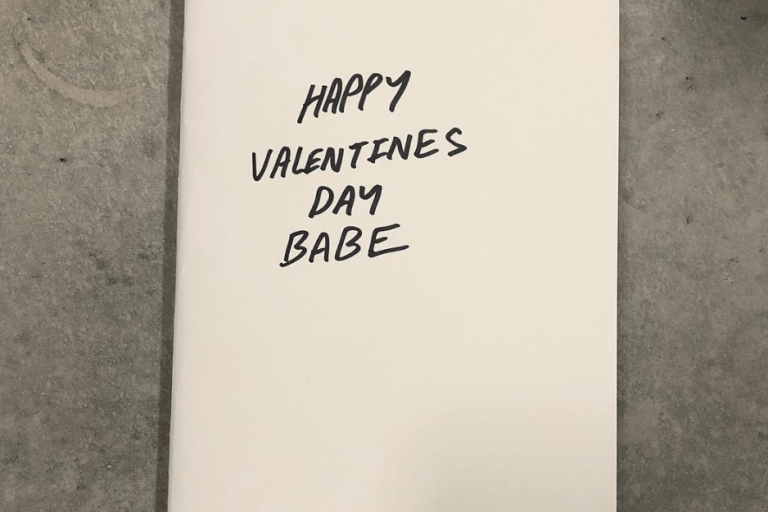 HAPPY
VALENTINES
DAY
BABE